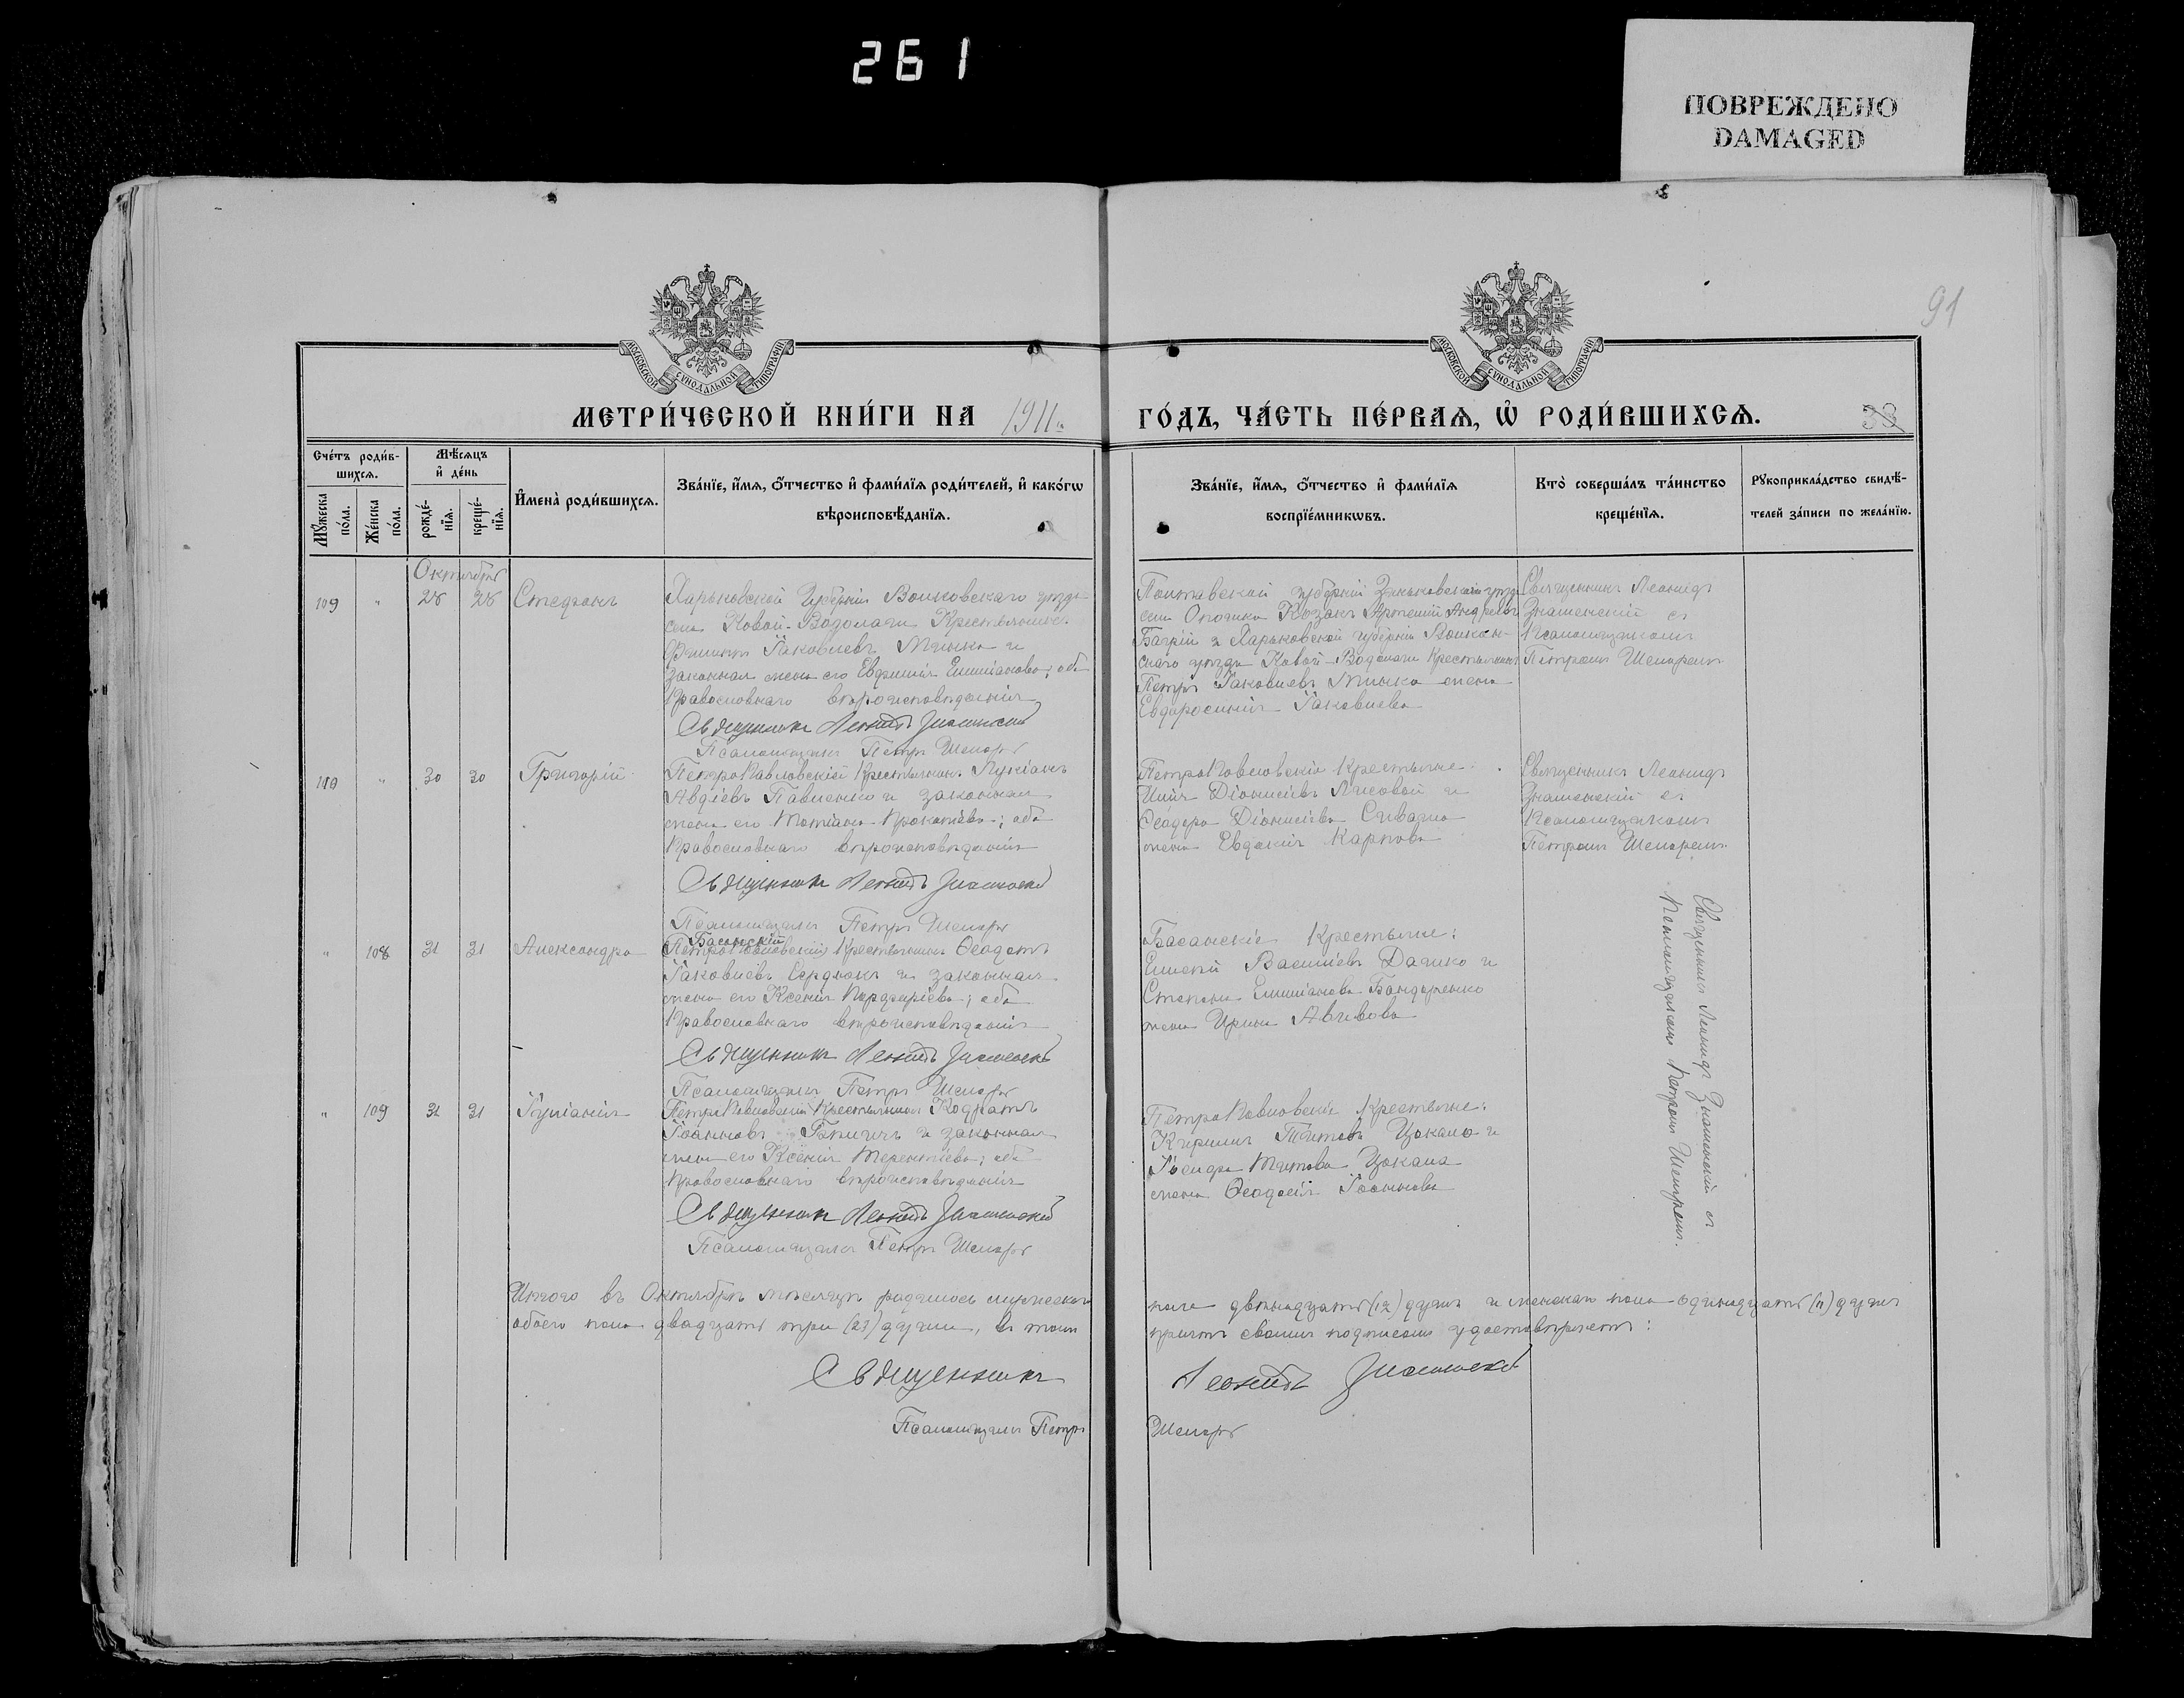 261
ПОВРЕЖДЕНО
DAMAGED
91
МОСКОВСКОЙ СУНОДАЛЬНОЙ ТИПОГРАФІИ
МОСКОВСКОЙ СУНОДАЛЬНОЙ ТИПОГРАФІИ
МЕТРИ́ЧЕСКОЙ КНИ́ГИ НА 1911
ГО́ДЪ, ЧА́СТЬ ПЕ́РВАѦ, Ѡ҆ РОДИ́ВШИХСѦ.
33
Сче́тъ роди́в-
шихсѧ.
Мѣ́сѧцъ
и҆ де́нь
Мꙋ́жеска
по́ла.
Же́нска
по́ла.
рожде́-
нїѧ.
креще́-
нїѧ.
И҆мена̀ роди́вшихсѧ.
Зва́нїе, и҆́мѧ, ѻ҆́тчество и҆ фами́лїѧ роди́телей, и҆ како́гѡ
вѣроисповѣ́данїѧ.
Зва́нїе, и҆́мѧ, ѻ҆́тчество и҆ фами́лїѧ
воспрїе́мникѡвъ.
Кто̀ соверша́лъ та́инство
креще́нїѧ.
Рꙋкоприкла́дство свидѣ́-
телей за́писи по жела́нїю.
Октябрь
109 " 28 28 Стефанъ
Харьковской Губерніи Волковскаго уѣзда
села Новой-Водолаги Крестьянинъ
Филиппъ Іаковлевъ Минка и
законная жена его Евфимія Емиліанова; оба
Православнаго вѣроисповѣданія
Священникъ Леонидъ Знаменскій
Псаломщикъ Петръ Шепарь
Полтавской губерніи Зеньковскаго уѣзда
села Опошни Козакъ Артемій Андреевъ
Багрій и Харьковской губерніи Волков-
скаго уѣзда Новой-Водолаги Крестьянина
Петра Іаковлева Минка жена
Евфросинія Іаковлева
Священникъ Леонидъ
Знаменскій съ
Псаломщикомъ
Петромъ Шепаремъ
110 " 30 30 Григорій
ПетроПавловскій Крестьянинъ Лукіанъ
Авдіевъ Павленко и законная
жена его Татіана Прокопіева; оба
Православнаго вѣроисповѣданія
Священникъ Леонидъ Знаменскій
Псаломщикъ Петръ Шепарь
ПетроПавловскіе Крестьяне
Илія Діонисіевъ Лисовой и
Ѳеодора Діонисіева Сиваша
жена Евдокія Карпова
Священникъ Леонидъ
Знаменскій съ
Псаломщикомъ
Петромъ Шепаремъ
" 108 31 31 Александра
Басанскій
ПетроПавловскій Крестьянинъ Ѳеодотъ
Іаковлевъ Сердюкъ и законная
жена его Ксенія Порфиріева; оба
Православнаго вѣроисповѣданія
Священникъ Леонидъ Знаменскій
Псаломщикъ Петръ Шепарь
Басанскіе Крестьяне:
Емелій Василіевъ Дашко и
Стефана Емиліанова Бондаренко
жена Ирина
Священникъ Леонидъ Знаменскій съ
Псаломщикомъ Петромъ Шепаремъ.
" 109 31 31 Іуліанія
ПетроПавловскій Крестьянинъ Кодратъ
Іоанновъ и законная
жена его Ксенія Терентіева; оба
Православнаго вѣроисповѣданія
Священникъ Леонидъ Знаменскій
Псаломщикъ Петръ Шепарь
ПетроПавловскіе Крестьяне:
Кириллъ Титовъ Цокало и
Титова Цокала
жена Ѳеодосія Іоаннова
Итого въ Октябрѣ мѣсяцѣ родилось мужеска
пола двѣнадцать (12) душъ и женска пола одинадцать (11) душъ
обоего пола двадцать три (23) души, въ томъ
причтъ своимъ подписомъ удостовѣряетъ:
Священникъ Леонидъ Знаменскій
Псаломщикъ Петръ Шепарь